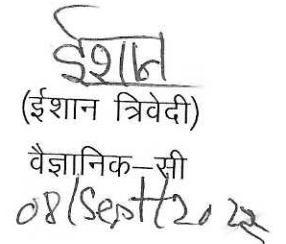 ईशान
(ईशान त्रिवेदी)
वैज्ञानिक–सी
08/Sept/2022